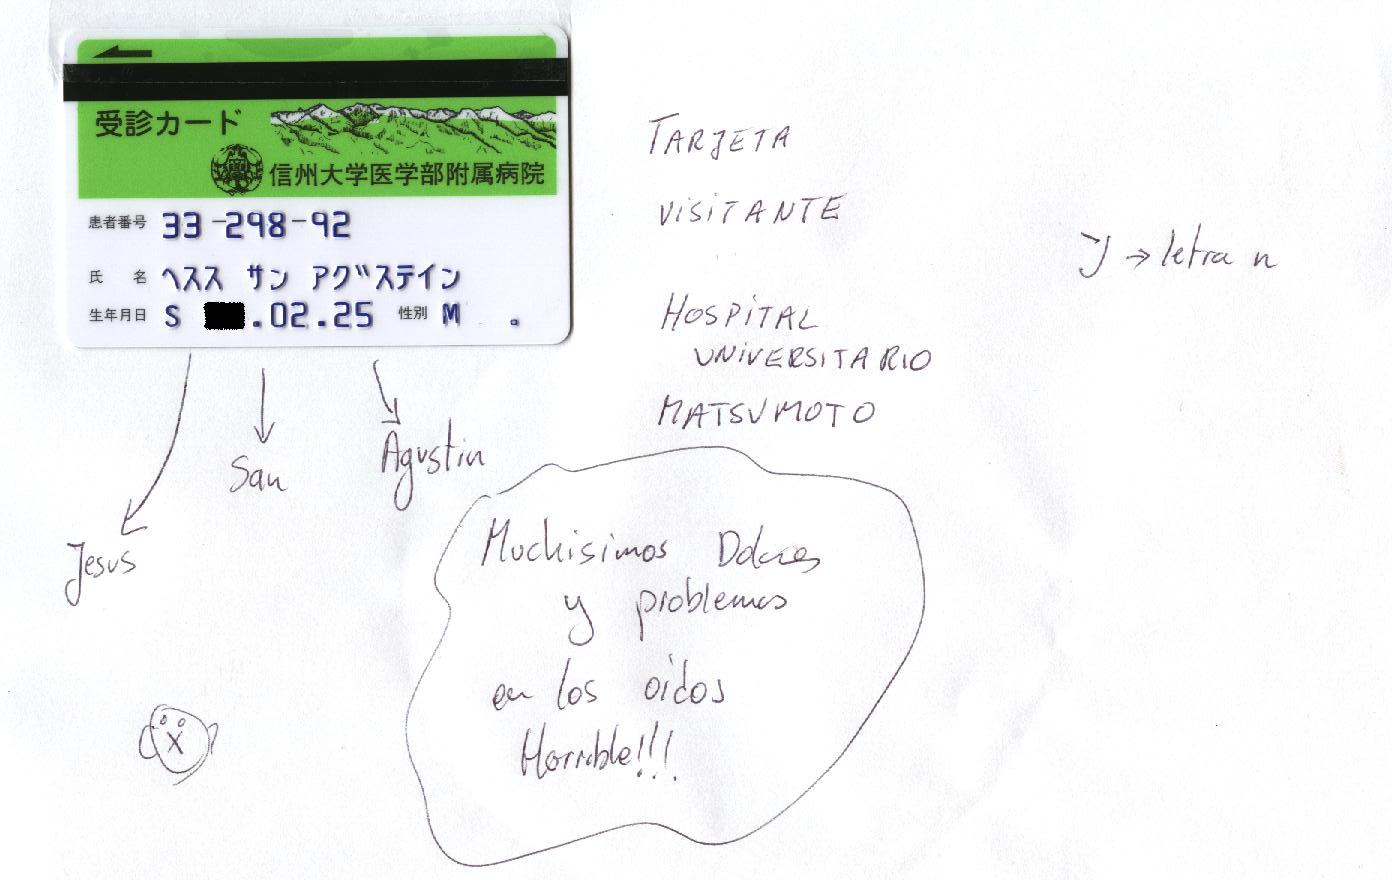 受診カード
信州大学医学部附属病院
患者番号 33-298-92
氏 名 ヘスス サン アグステイン
生年月日 S .02.25 性別 M 。
Jesus
San
Agustin
TARJETA
VISITANTE
HOSPITAL
UNIVERSITARIO
MATSUMOTO
ン → letra n
Muchisimos Dolores
y problemas
en los oidos
Horrible!!!